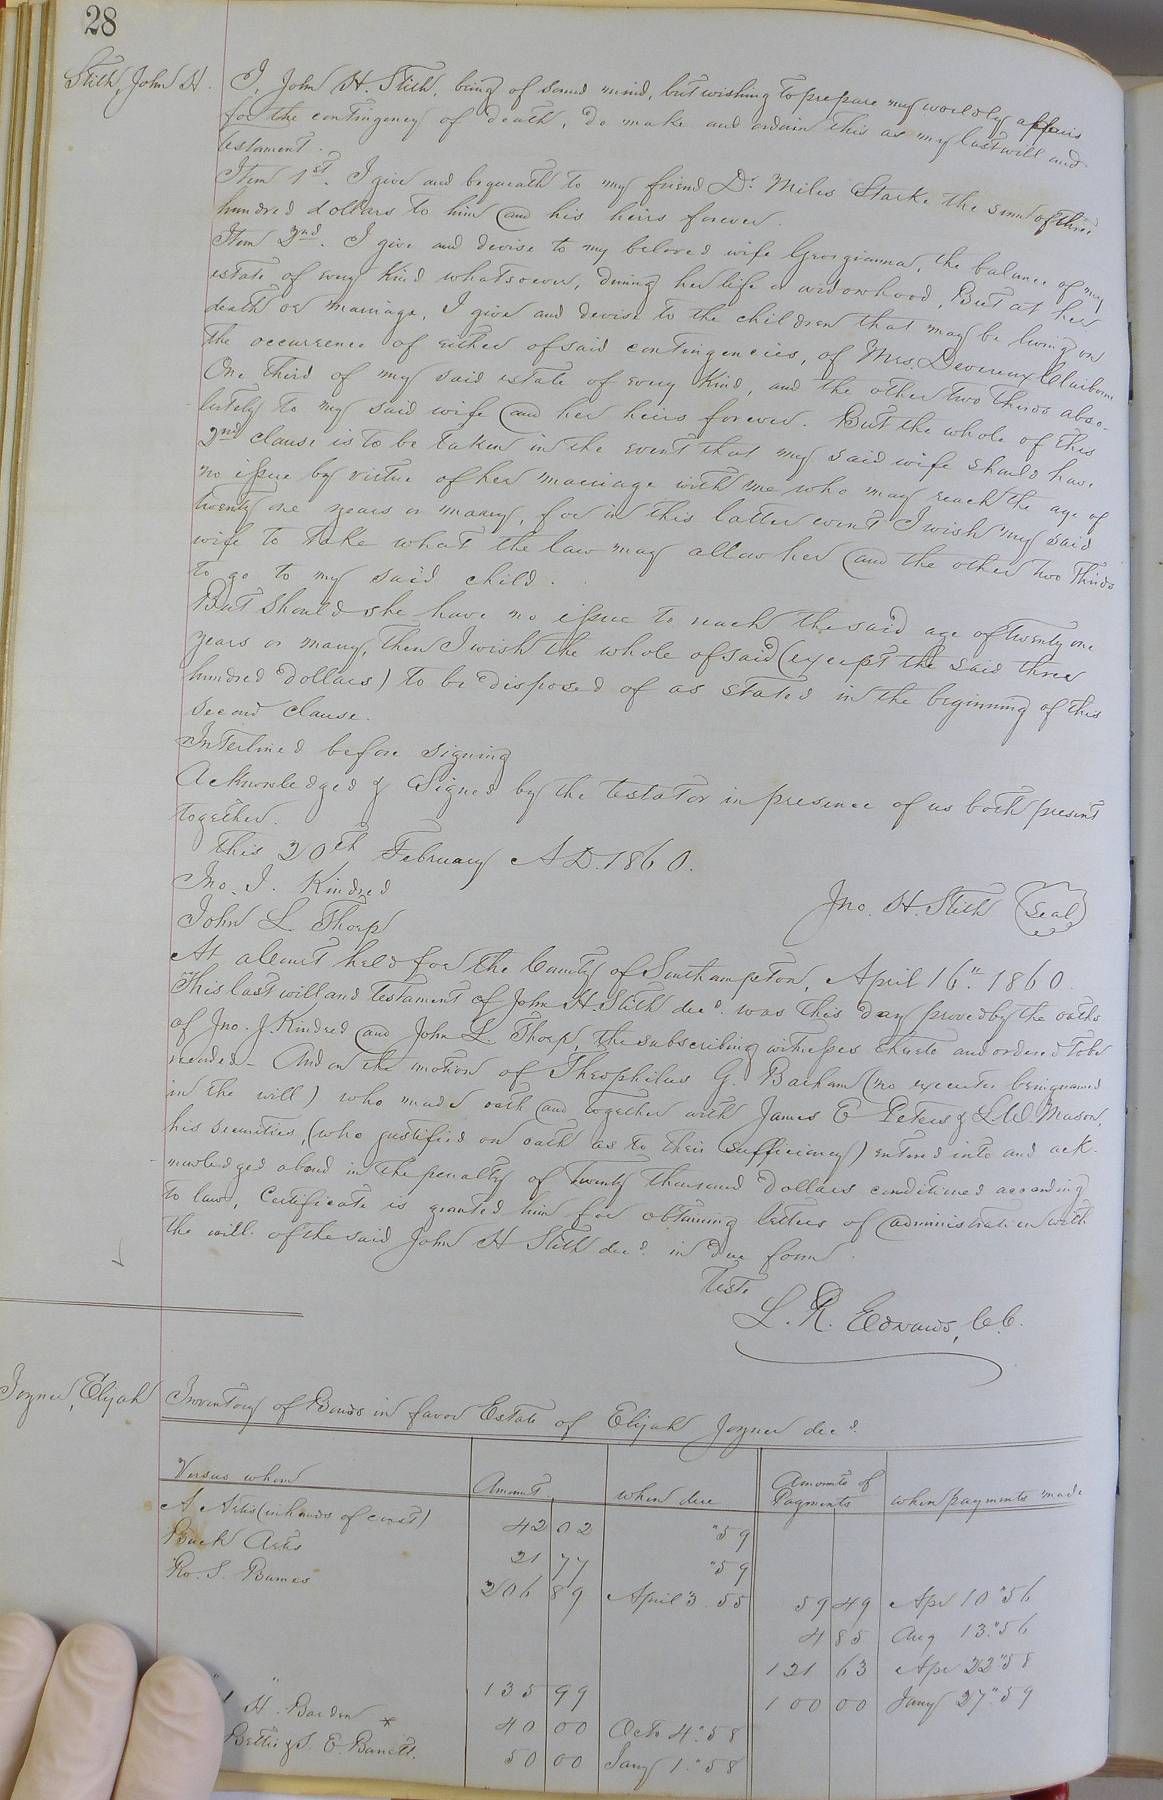 28
Stith, John H.
I, John H. Stith, being of sound mind, but wishing to prepare my worldly affairs
for the contingency of death, do make and ordain this as my last will and
testament.
Item 1st. I give and bequeath to my friend Dr. Miles Starke the sum of three
hundred dollars to him and his heirs forever.
Item 2nd. I give and devise to my beloved wife Georgianna, the balance of my
estate of every kind whatsoever, during her life or widowhood, But at her
death or marriage, I give and devise to the children that may be living on
the occurrence of either of said contingencies, of Mrs. Devereux Claiborne
One third of my said estate of every kind, and the other two thirds abso-
lutely to my said wife and her heirs forever. But the whole of this
2nd clause is to be taken in the event that my said wife should have
no issue by virtue of her marriage with me who may reach the age of
twenty one years or marry, for in this latter event I wish my said
wife to take what the law may allow her and the other two thirds
to go to my said child.
But should she have no issue to reach the said age of twenty one
years or marry, then I wish the whole of said (except the said three
hundred dollars) to be disposed of as stated in the beginning of this
second clause.
Interlined before signing
Acknowledged & Signed by the testator in presence of us both present
together.
This 20th February A.D. 1860.
Jno. J. Kindred
Jno. H. Stith (Seal)
John L. Thorp
At a Court held for the County of Southampton, April 16th 1860.
This last will and testament of John H. Stith decd. was this day proved by the oaths
of Jno. J. Kindred and John L. Thorp, the subscribing witnesses thereto and ordered to be
recorded - And on the motion of Theophilus G. Barham (no executor being named
in the will) who made oath and together with James E Peters & L. W. Mason,
his securities, (who justified on oath as to their sufficiency) entered into and ack-
nowledged a bond in the penalty of Twenty thousand dollars conditioned according
to law, Certificate is granted him for obtaining letters of administration with
the will of the said John H Stith decd. in due form.
Teste
L. R. Edwards, C.C.
Joyner, Elijah
Inventory of Bonds in favor Estate of Elijah Joyner decd.
Versus whom Amount when due Amounts of Payments when payments made
A Artis (in hands of const) 42 02 "59
Buck Artis 21 77 "59
Ro. S. Barnes 206 89 April 3 55 59 49 Apr 10 "56
4 85 Aug 13 "56
121 63 Apr 22 "58
" " 135 99 100 00 Jany 27 "59
H. Barden * 40 00 Octo 4 "58
Bettie & S. E. Barrett. 50 00 Jany 1 "58